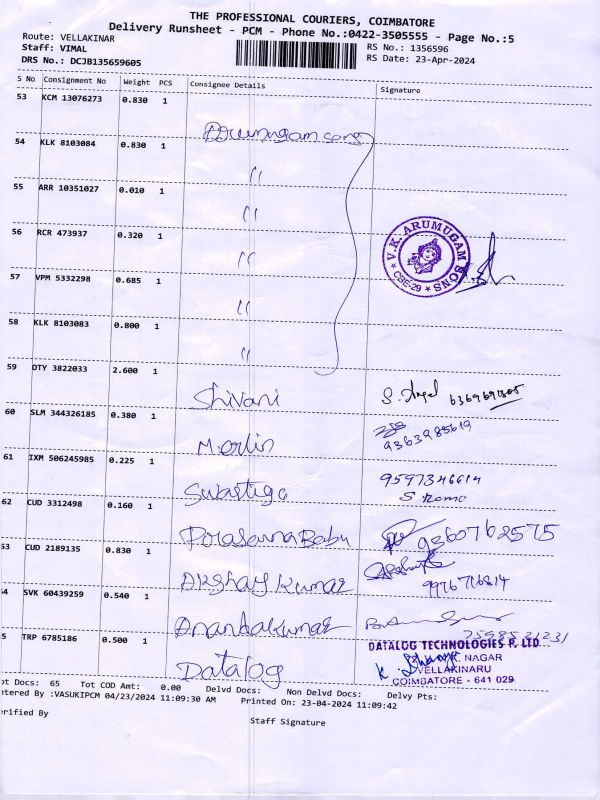 THE PROFESSIONAL COURIERS, COIMBATORE
Delivery Runsheet - PCM - Phone No.:0422-3505555 - Page No.:5
Route: VELLAKINAR
RS No.: 1356596
Staff: VIMAL
RS Date: 23-Apr-2024
DRS No.: DCJB135659605
S No Consignment No Weight PCS Consignee Details Signature
53 KCM 13076273 0.830 1 Arumugam sons
54 KLK 8103084 0.830 1 "
55 ARR 10351027 0.010 1 "
56 RCR 473937 0.320 1 "
V.K. ARUMUGAM SONS
* CBE-29 *
57 VPM 5332298 0.685 1 "
58 KLK 8103083 0.800 1 "
59 DTY 3822033 2.600 1 Shivani
60 SLM 344326185 0.380 1 Merlin 9363985619
61 IXM 506245985 0.225 1 Swastiga 9597346614
62 CUD 3312498 0.160 1 Prasanna Babu 9360762575
53 CUD 2189135 0.830 1 Akshay Kumar 9976776814
54 SVK 60439259 0.540 1 Anandakumar
5 TRP 6785186 0.500 1 Datalog
DATALOG TECHNOLOGIES P. LTD
NAGAR
VELLAKINARU
COIMBATORE - 641 029
ot Docs: 65 Tot COD Amt: 0.00 Delvd Docs: Non Delvd Docs: Delvy Pts:
ntered By :VASUKIPCM 04/23/2024 11:09:30 AM Printed On: 23-04-2024 11:09:42
erified By
Staff Signature